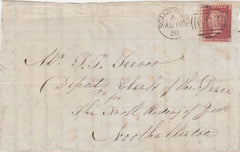 Mr. T. S. Trevor
Deputy Clerk of the Peace
for
The North Riding of York
Northallerton
A
AU 18